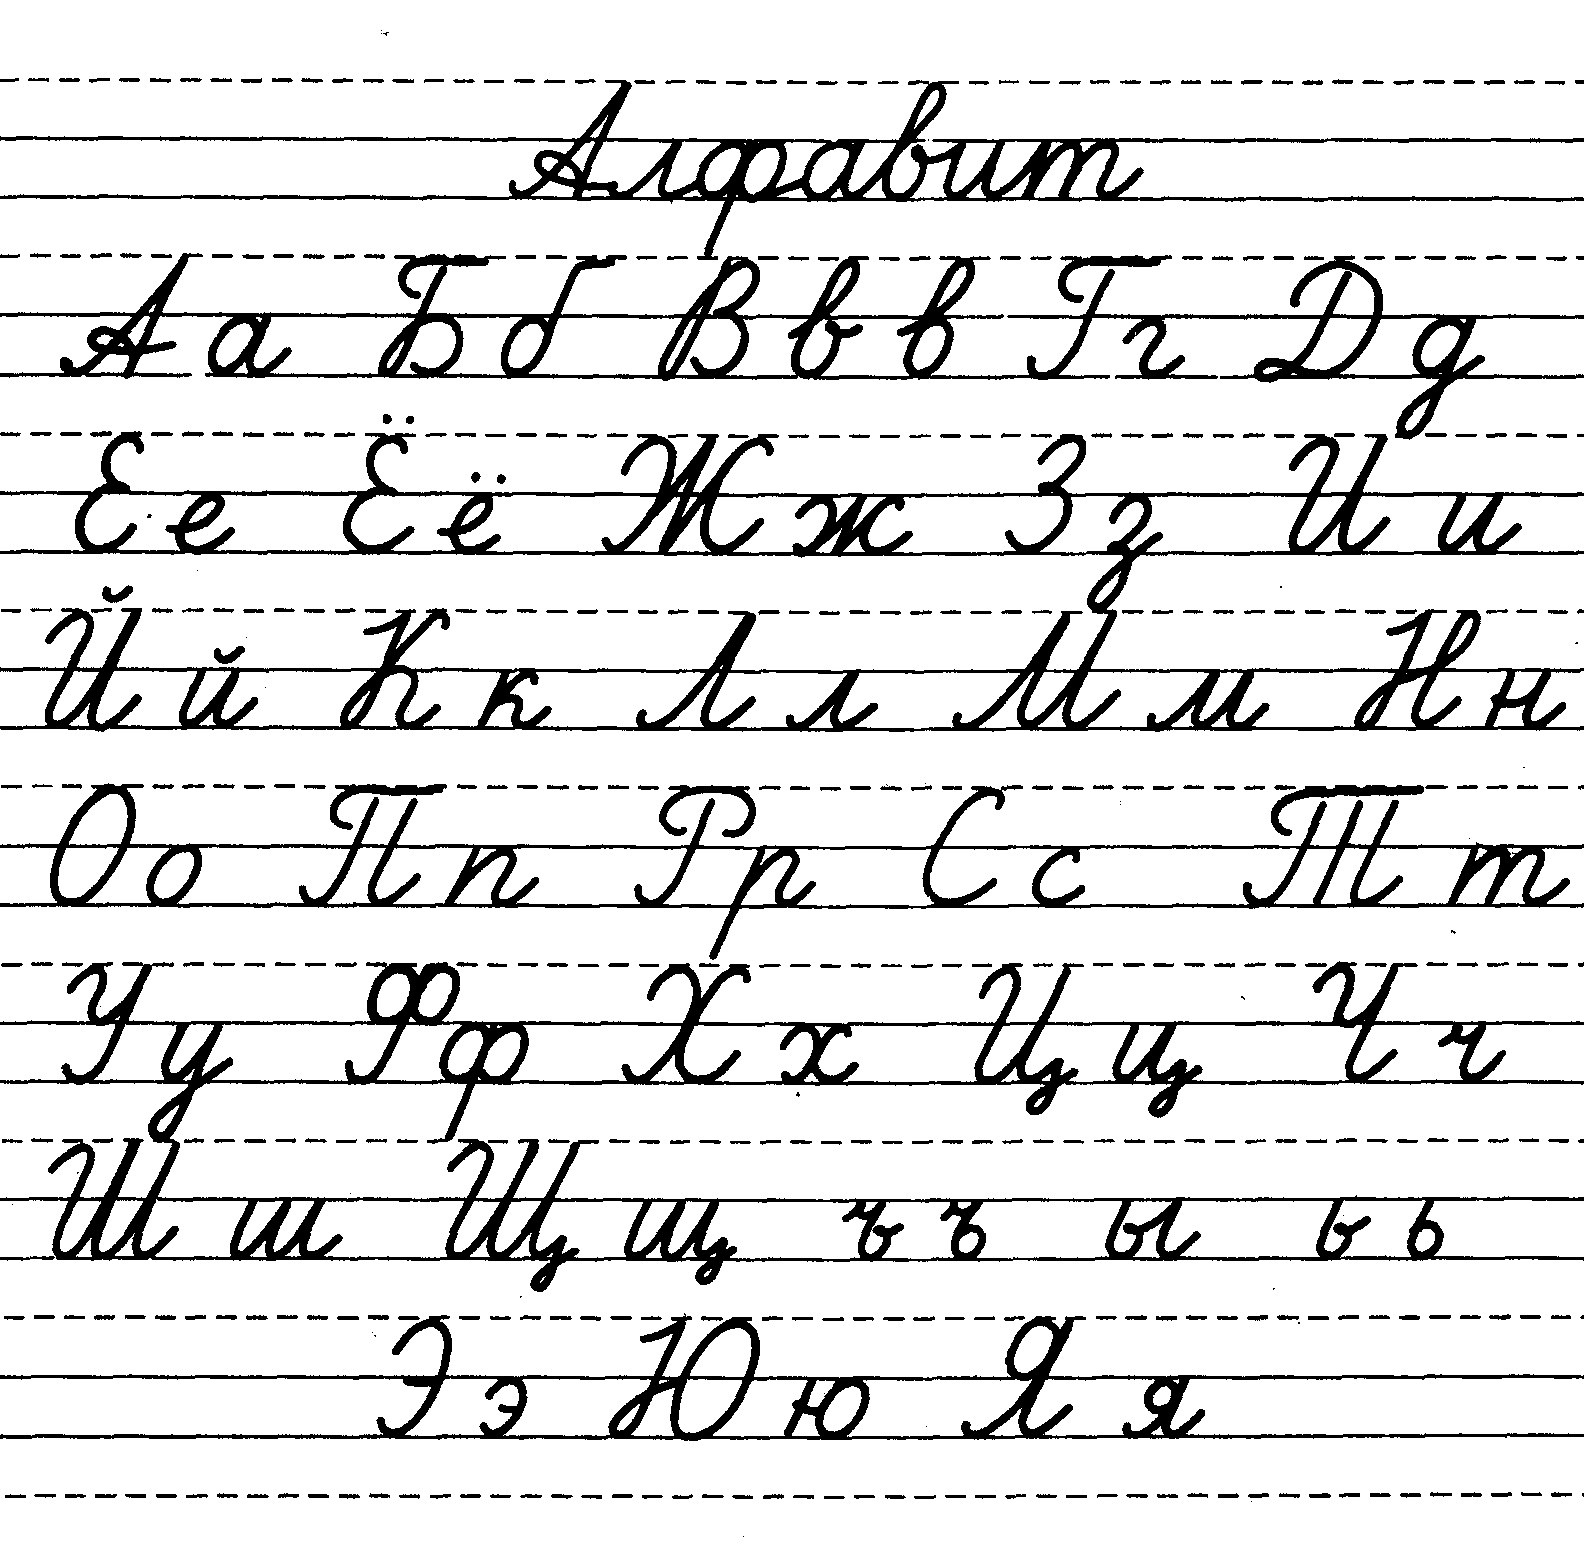 Алфавит
А а Б б В в в Г г Д д
Е е Ё ё Ж ж З з И и
Й й К к Л л М м Н н
О о П п Р р С с Т т
У у Ф ф Х х Ц ц Ч ч
Ш ш Щ щ ъ ъ ы ь ь
Э э Ю ю Я я